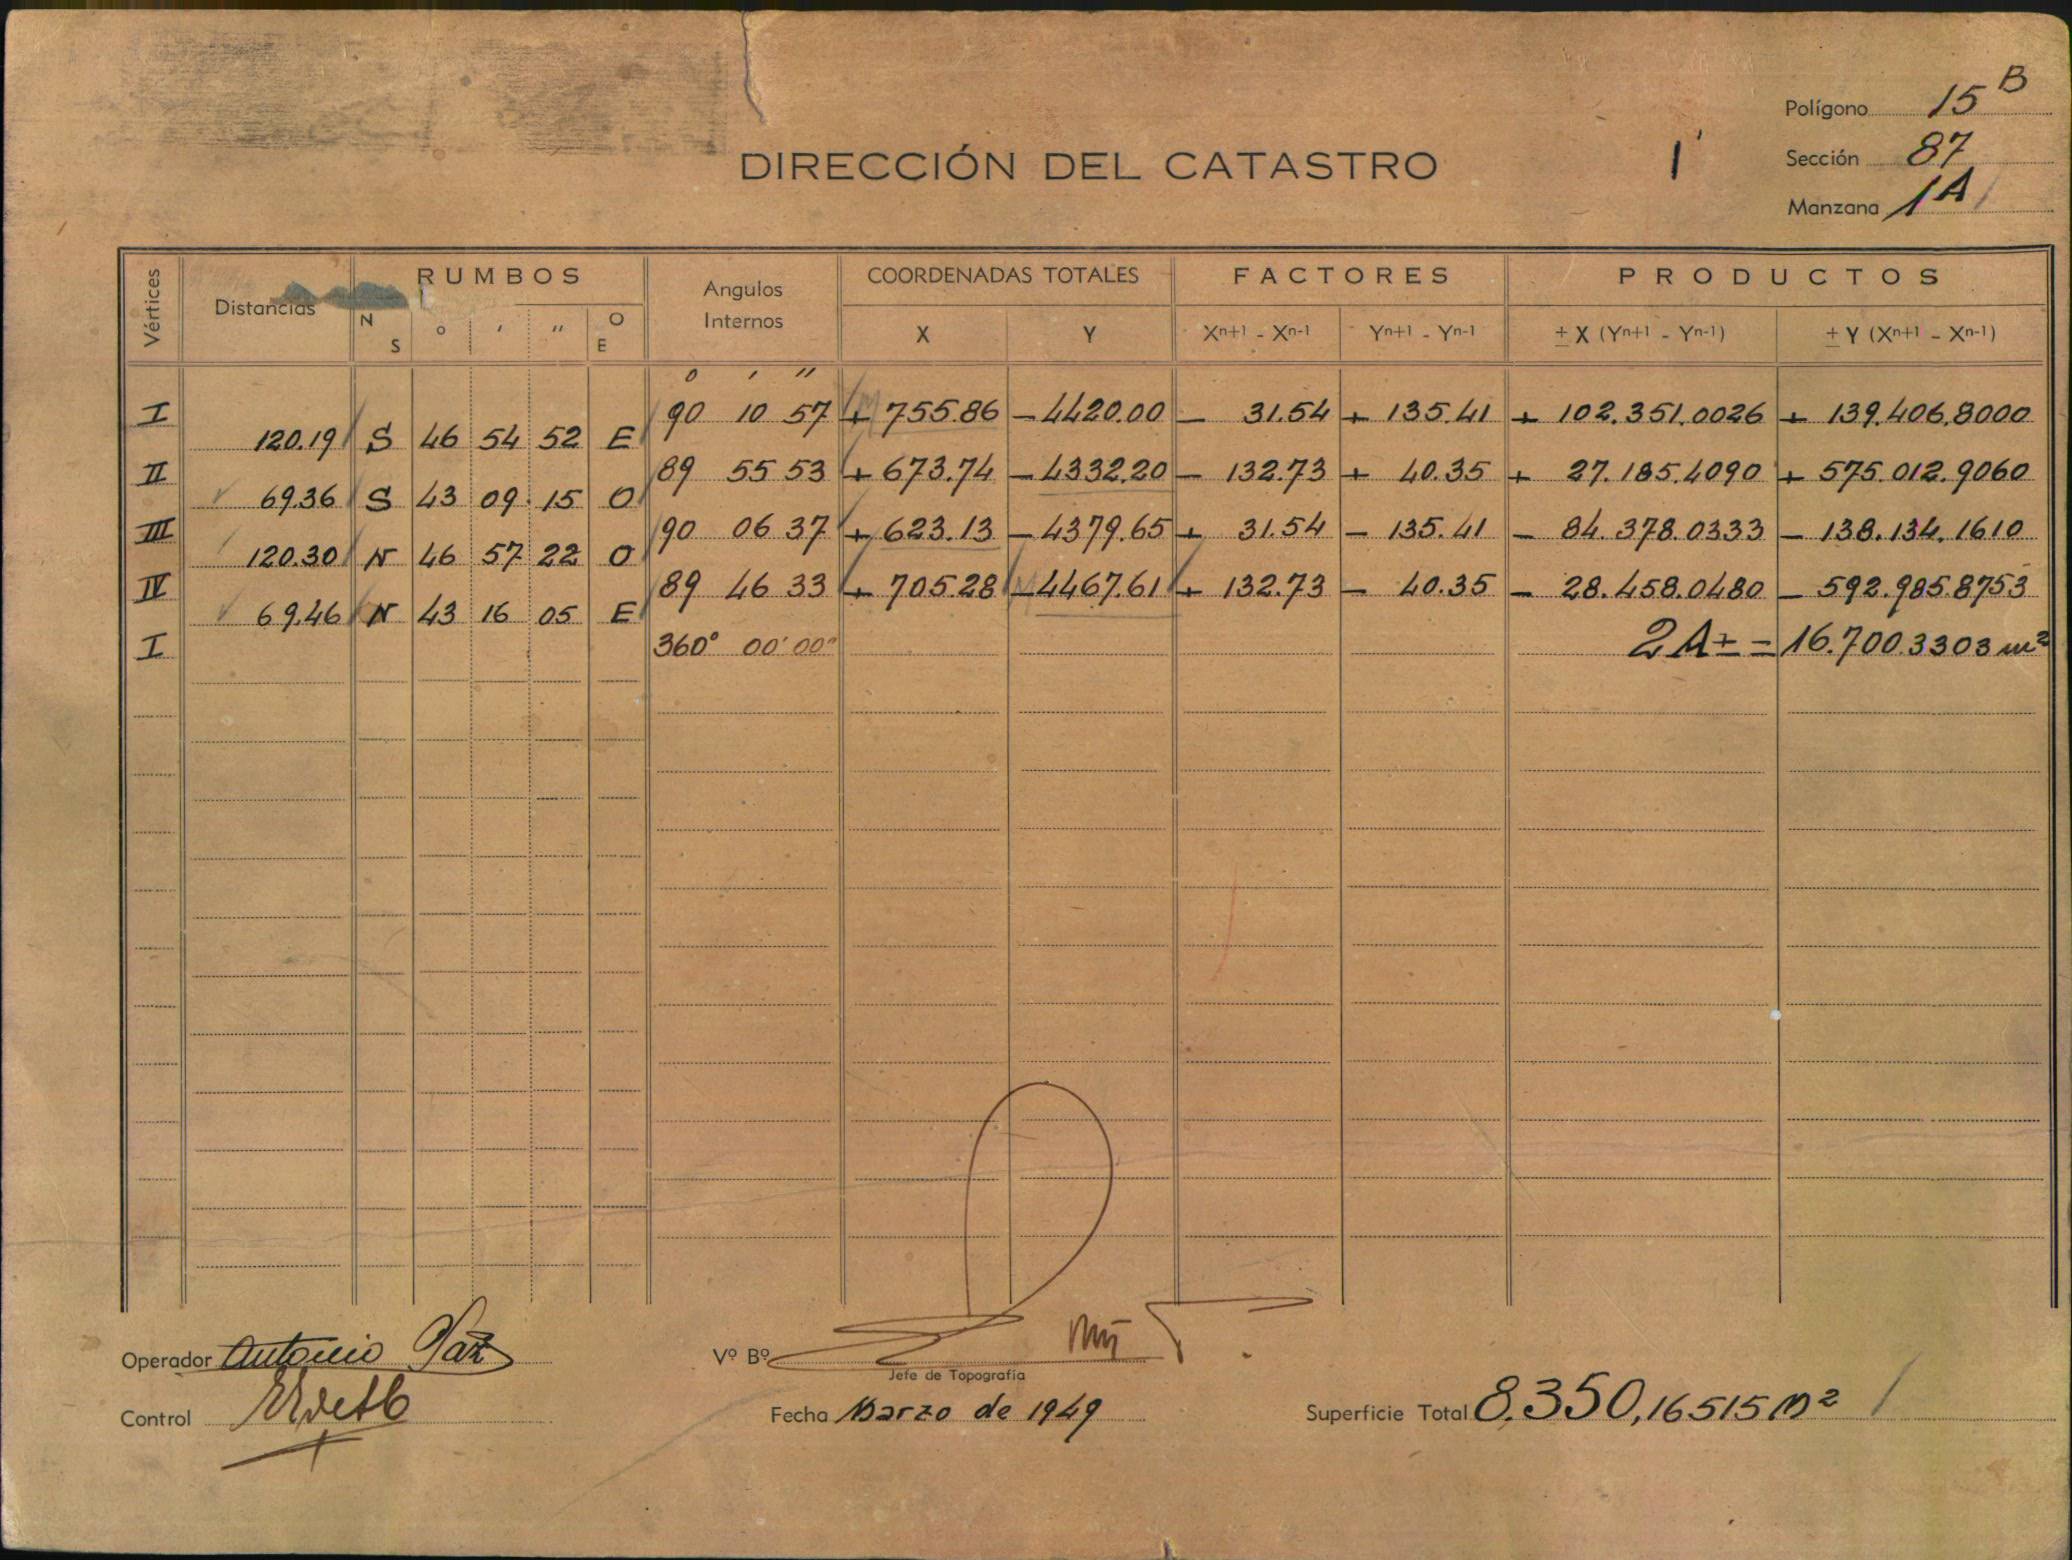 Polígono 15 B
DIRECCIÓN DEL CATASTRO 1
Sección 87
Manzana 1A
Vértices Distancias RUMBOS Angulos Internos COORDENADAS TOTALES FACTORES PRODUCTOS
N S ° ′ ″ O E X Y Xn+1 - Xn-1 Yn+1 - Yn-1 ± X (Yn+1 - Yn-1) ± Y (Xn+1 - Xn-1)
° ′ ″
I 90 10 57 + 755.86 - 4420.00 - 31.54 + 135.41 + 102.351.0026 + 139.406.8000
120.19 S 46 54 52 E
II 89 55 53 + 673.74 - 4332.20 - 132.73 + 40.35 + 27.185.4090 + 575.012.9060
69.36 S 43 09 15 O
III 90 06 37 + 623.13 - 4379.65 + 31.54 - 135.41 - 84.378.0333 - 138.134.1610
120.30 N 46 57 22 O
IV 89 46 33 + 705.28 - 4467.61 + 132.73 - 40.35 - 28.458.0480 - 592.985.8753
69.46 N 43 16 05 E
I 360° 00′ 00″ 2A± = 16.700.3303 m²
Operador Antonio Paz
Vº Bº
Jefe de Topografía
Control
Fecha Marzo de 1949
Superficie Total 8.350,16515 M²